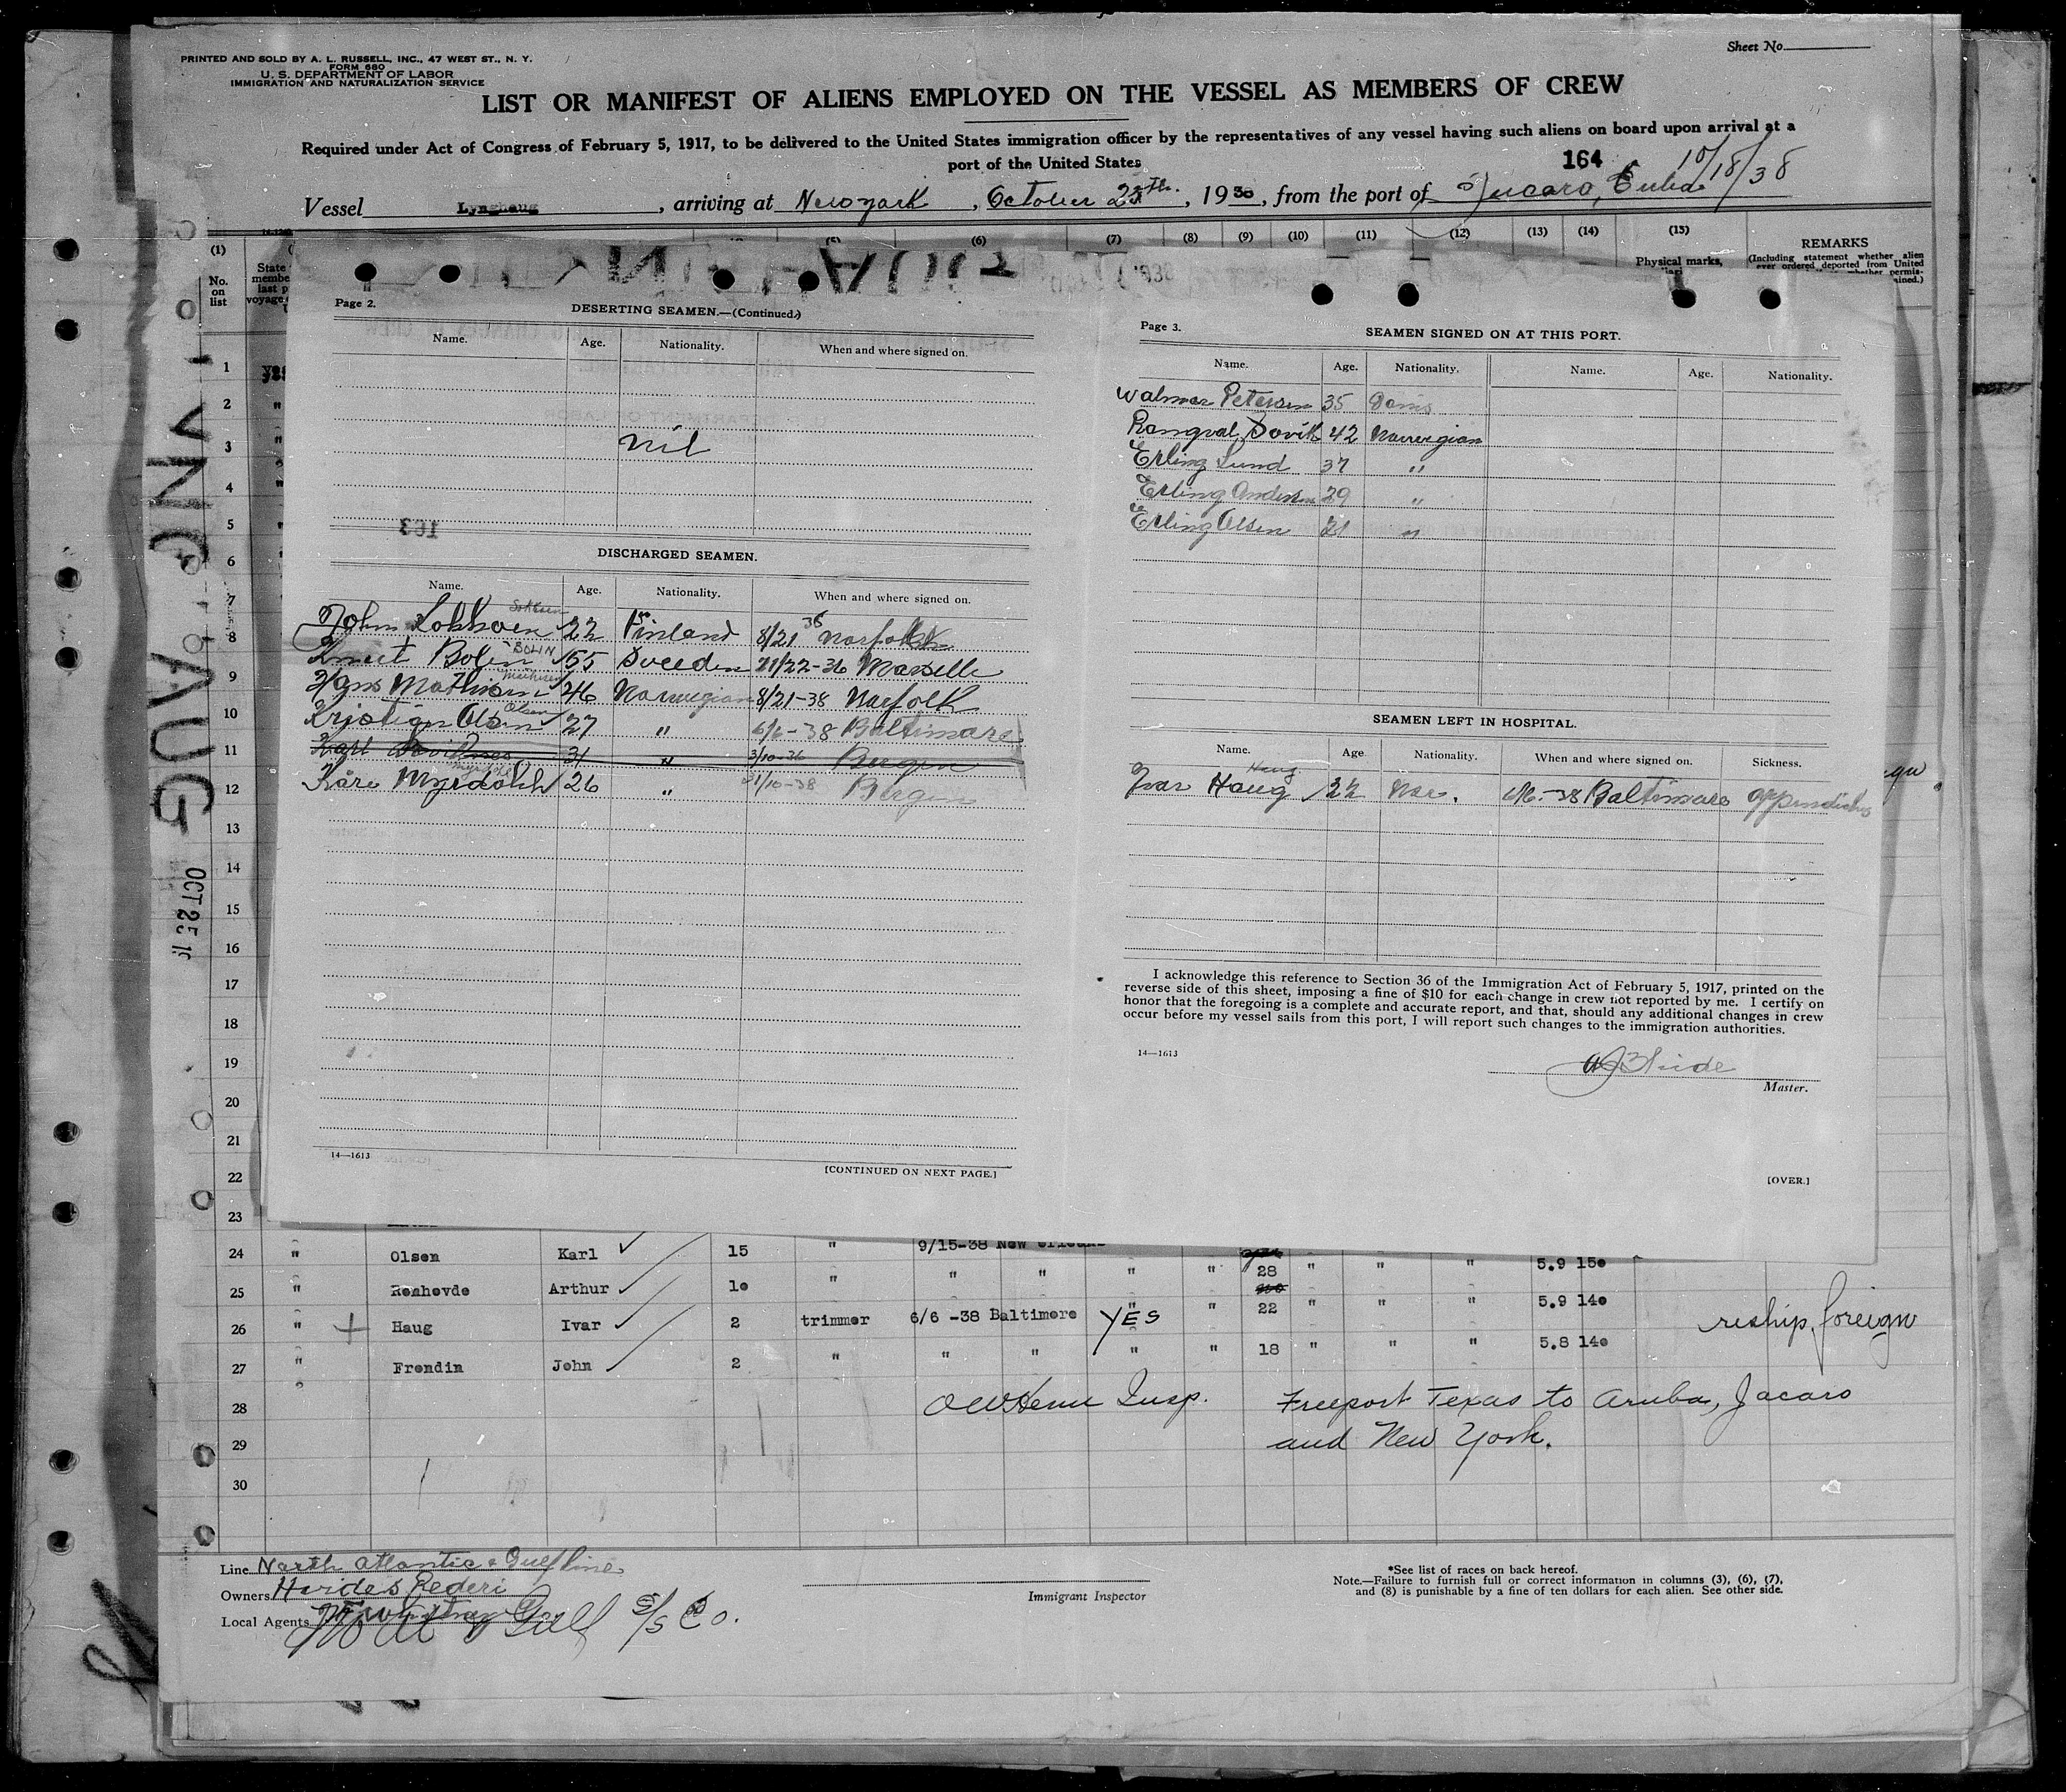 PRINTED AND SOLD BY A. L. RUSSELL, INC., 47 WEST ST., N. Y.
FORM 680
U. S. DEPARTMENT OF LABOR
IMMIGRATION AND NATURALIZATION SERVICE
Sheet No.
LIST OR MANIFEST OF ALIENS EMPLOYED ON THE VESSEL AS MEMBERS OF CREW
Required under Act of Congress of February 5, 1917, to be delivered to the United States immigration officer by the representatives of any vessel having such aliens on board upon arrival at a
port of the United States
164 10/18/38
Vessel Lynghaug, arriving at New york, October 25th., 1938, from the port of Jucaro, Cuba
(1) (5) (6) (7) (8) (9) (10) (11) (12) (13) (14) (15)
No. on list
Physical marks,
REMARKS
(Including statement whether alien
ever ordered deported from United
LYNGHAUG
OCT 25
Page 2.
DESERTING SEAMEN.—(Continued.)
Name. Age. Nationality. When and where signed on.
nil
163
DISCHARGED SEAMEN.
Name. Age. Nationality. When and where signed on.
John 22 Finland 8/21 38 Norfolk
Bolin BOLIN 55 Sweeden 21/22-36 Marselle
Hans Mathisen Mathisen 46 Norwegian 8/21-38 Norfolk
Kristian Olsen Olsen 27 " 6/6-38 Baltimore
31 " 3/10-36 Bergen
Kåre Myrdahl 26 " 21/10-38 Bergen
14—1613
[CONTINUED ON NEXT PAGE.]
Page 3.
SEAMEN SIGNED ON AT THIS PORT.
Name. Age. Nationality. Name. Age. Nationality.
Walmar Petersen 35 Danis
Rangval Sovik 42 Norwegian
Erling Lund 37 "
Erling Andersen 29 "
Erling Olsen 21 "
SEAMEN LEFT IN HOSPITAL.
Name. Age Nationality. When and where signed on. Sickness.
Ivar Haug Haug 22 Nor. 6/6-38 Baltimore appendicitis
I acknowledge this reference to Section 36 of the Immigration Act of February 5, 1917, printed on the
reverse side of this sheet, imposing a fine of $10 for each change in crew not reported by me. I certify on
honor that the foregoing is a complete and accurate report, and that, should any additional changes in crew
occur before my vessel sails from this port, I will report such changes to the immigration authorities.
14—1613
Master.
[OVER.]
1
2
3
4
5
6
7
8
9
10
11
12
13
14
15
16
17
18
19
20
21
22
23
24 " Olsen Karl 15 " 9/15-38 New Orleans 28 " " " 5.9 150
25 " Renhovde Arthur 10 " " " " " 22 " " " 5.9 140
26 " Haug Ivar 2 trimmer 6/6 -38 Baltimore YES " 18 " " " 5.8 140 reship foreign
27 " Frendin John 2 " " " " "
28 Insp. Freeport Texas to Aruba, Jacaro
29 and New York.
30
Line North Atlantic & Gulf Line
Owners Haides Rederi
Local Agents North & Gulf S/S Co.
Immigrant Inspector
*See list of races on back hereof.
Note.—Failure to furnish full or correct information in columns (3), (6), (7),
and (8) is punishable by a fine of ten dollars for each alien. See other side.